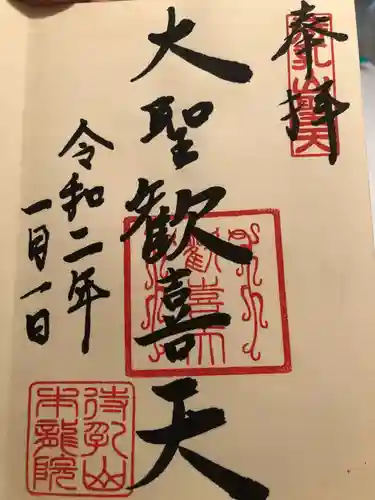 奉拝
大聖歓喜天
令和二年
一月一日
歓喜天
待乳山
本龍院